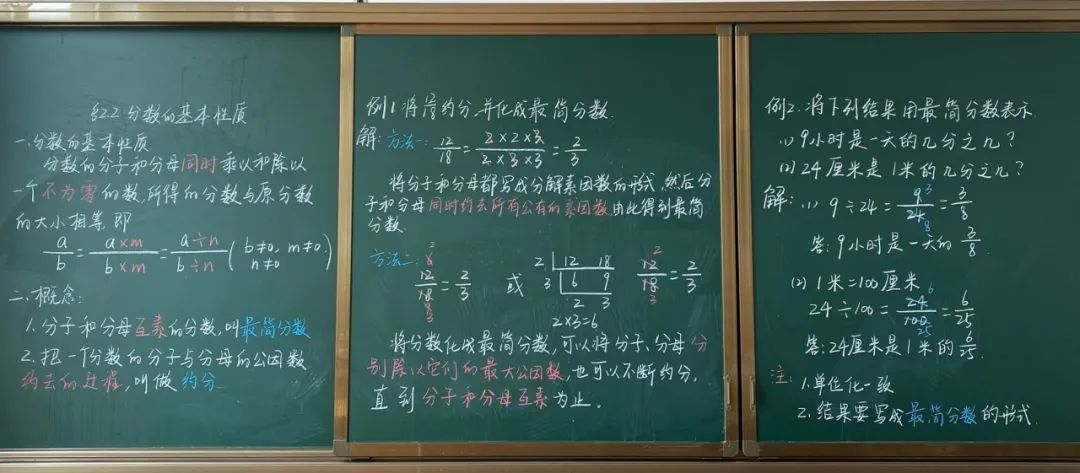 §2.2 分数的基本性质
一.分数的基本性质
分数的分子和分母同时乘以和除以
一个不为零的数,所得的分数与原分数
的大小相等.即
a/b = a×m/b×m = a÷n/b÷n ( b≠0, m≠0, n≠0 )
二.概念:
1.分子和分母互素的分数,叫最简分数
2.把一个分数的分子与分母的公因数
约去的过程,叫做约分
例1.将12/18约分,并化成最简分数.
解:方法一: 12/18 = 2×2×3/2×3×3 = 2/3
将分子和分母都写成分解素因数的形式,然后分
子和分母同时约去所有公有的素因数,由此得到最简
分数.
方法二: 12/18 = 2/3 或 2 12 18 12/18 = 2/3
6 2 3 6 9 2
9 3 2 3 3
2×3=6
将分数化成最简分数,可以将分子、分母分
别除以它们的最大公因数,也可以不断约分,
直到分子和分母互素为止。
例2.将下列结果用最简分数表示.
(1) 9小时是一天的几分之几?
(2) 24厘米是1米的几分之几?
解:(1) 9÷24 = 9/24 = 3/8
3 8
答:9小时是一天的3/8.
(2) 1米=100厘米
24÷100 = 24/100 = 6/25
6 25
答:24厘米是1米的6/25.
注:1.单位化一致
2.结果要写成最简分数的形式.